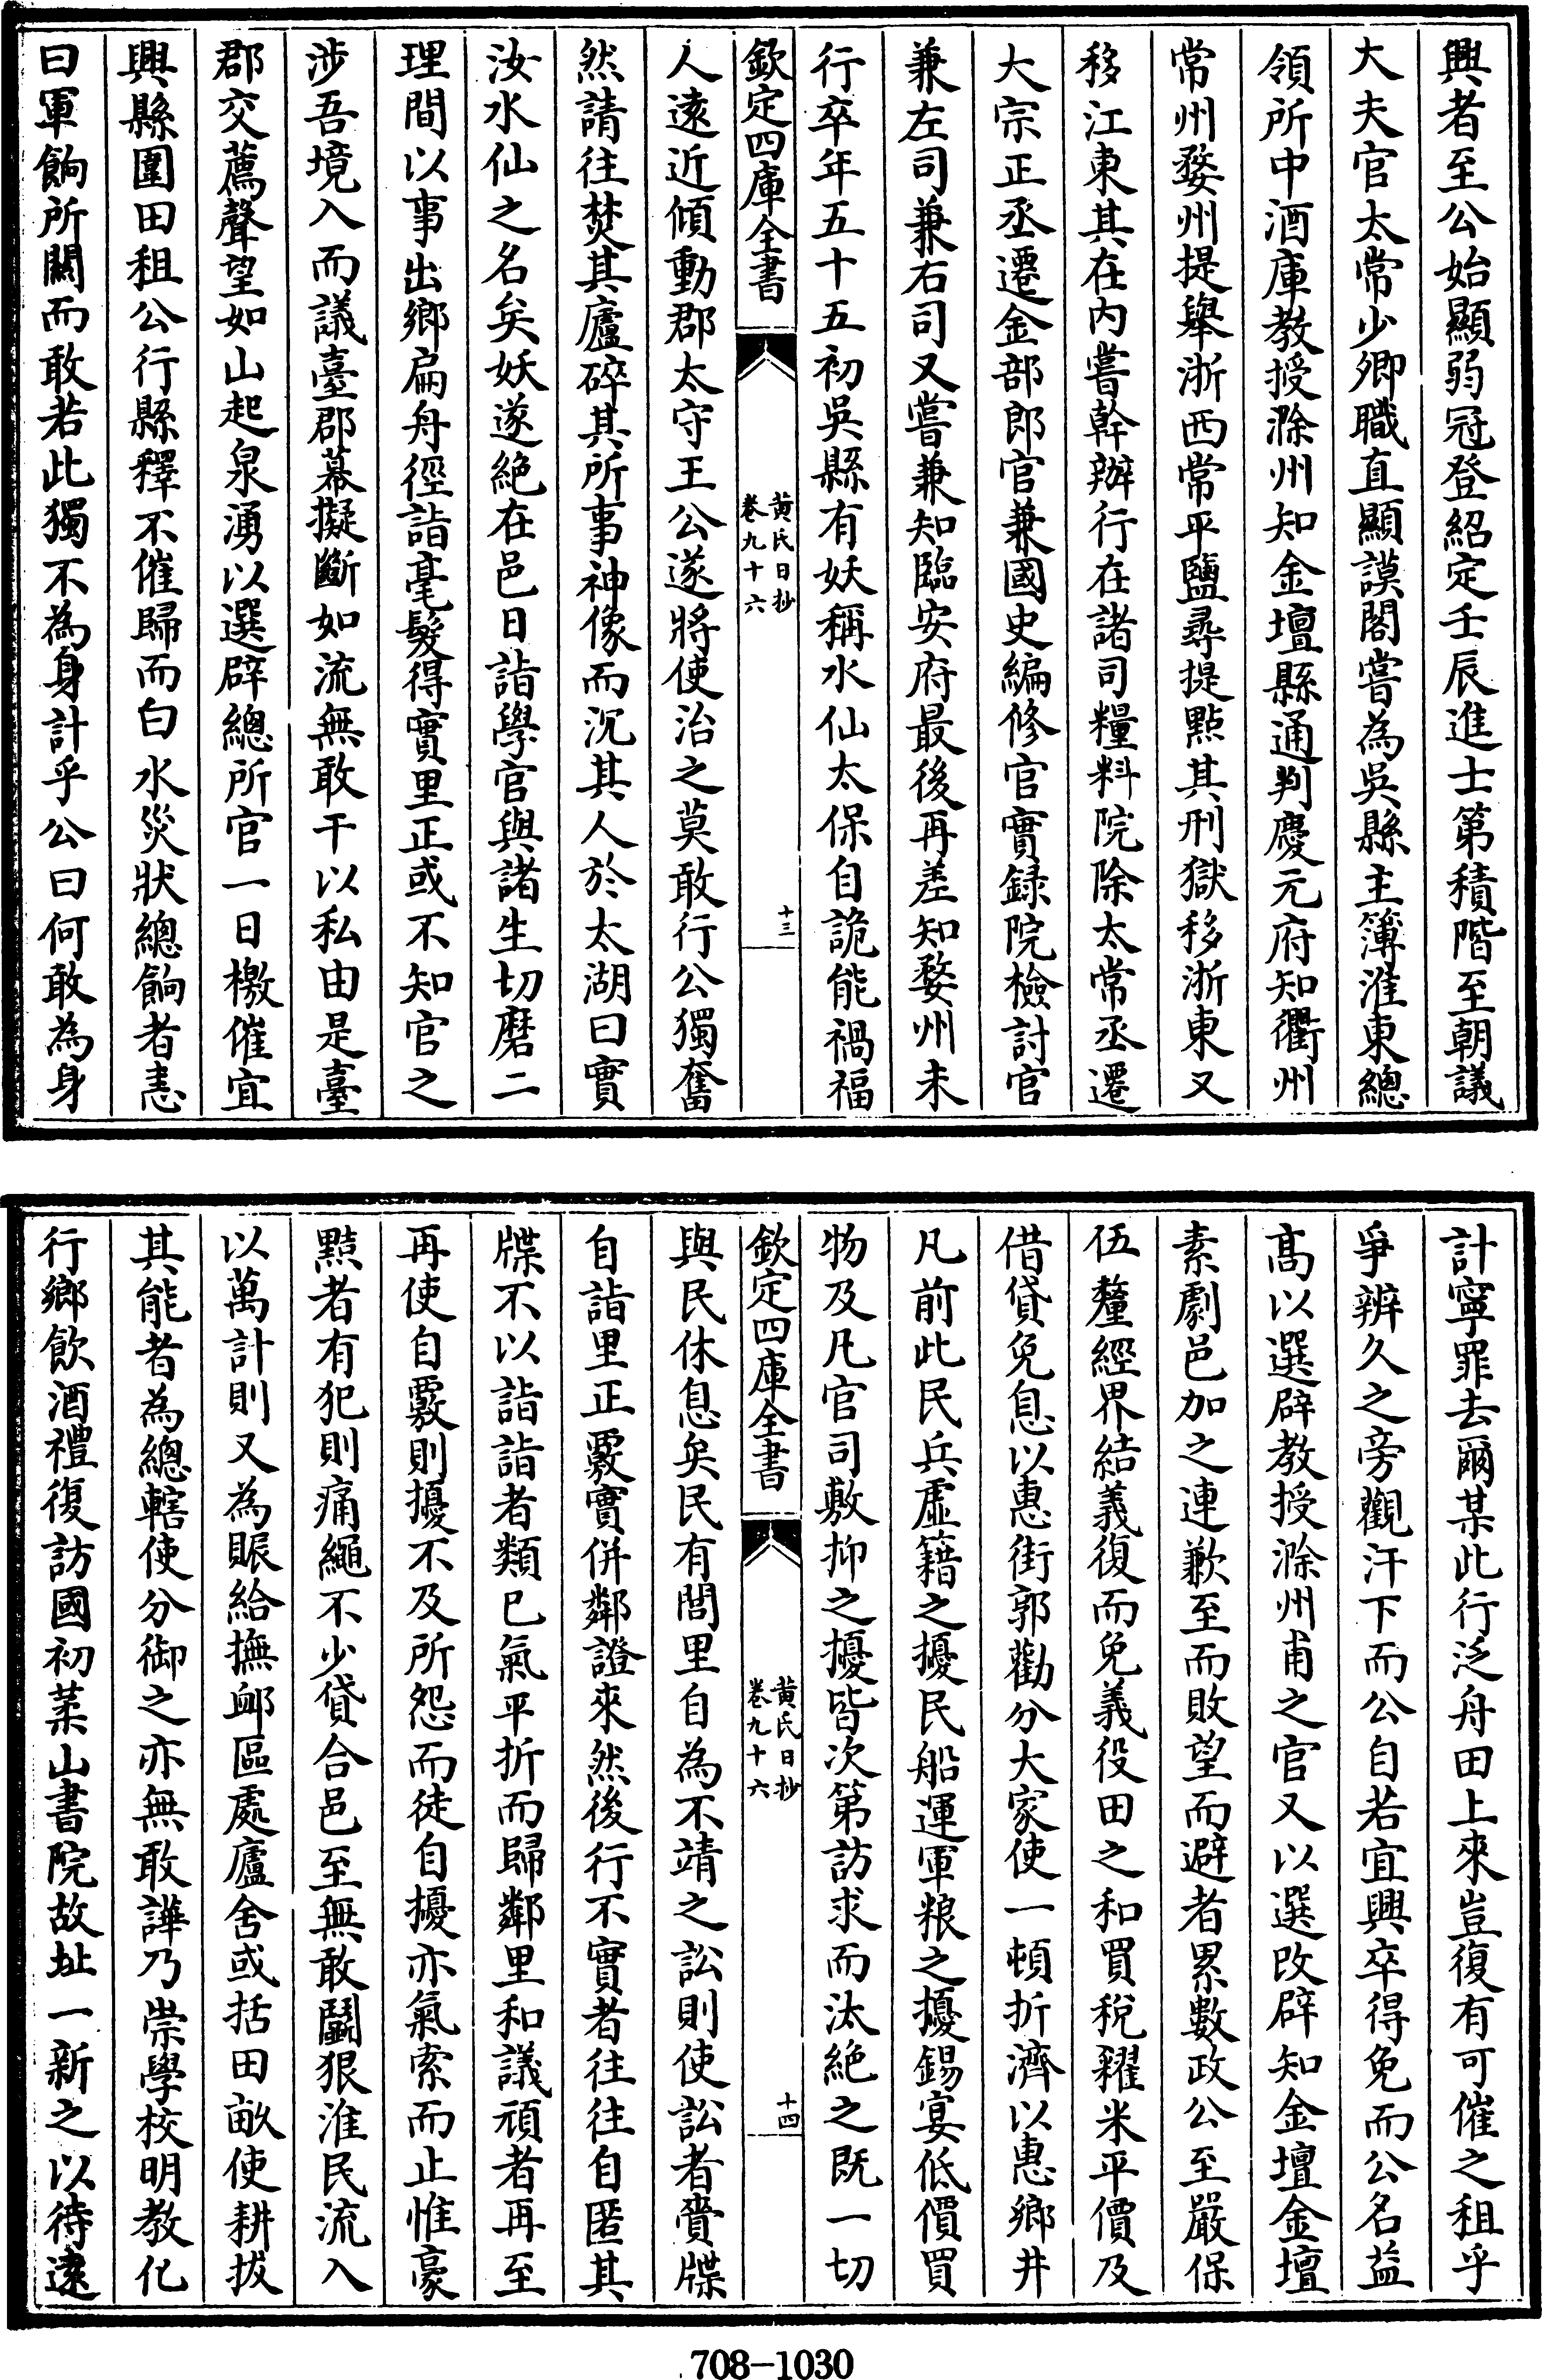 興者至公始顯弱冠登紹定壬辰進士第積階至朝議
大夫官太常少卿職直顯謨閣嘗為吳縣主簿淮東總
領所中酒庫教授滁州知金壇縣通判慶元府知衢州
常州婺州提舉浙西常平鹽尋提點其刑獄移浙東又
移江東其在内嘗幹辦行在諸司糧料院除太常丞遷
大宗正丞遷金部郎官兼國史編修官實録院檢討官
兼左司兼右司又嘗兼知臨安府最後再差知婺州未
行卒年五十五初吳縣有妖稱水仙太保自詭能禍福
欽定四庫全書
黄氏日抄
卷九十六
十三
人遠近傾動郡太守王公遂將使治之莫敢行公獨奮
然請往焚其廬碎其所事神像而沉其人於太湖曰實
汝水仙之名矣妖遂絶在邑日詣學官與諸生切磨二
理間以事出鄉扁舟徑詣毫髮得實里正或不知官之
涉吾境入而議臺郡幕擬斷如流無敢干以私由是臺
郡交薦聲望如山起泉湧以選辟總所官一日檄催宜
興縣圍田租公行縣釋不催歸而白水災狀總餉者恚
曰軍餉所闗而敢若此獨不為身計乎公曰何敢為身
計寧罪去爾某此行泛舟田上來豈復有可催之租乎
爭辨久之旁觀汗下而公自若宜興卒得免而公名益
髙以選辟教授滁州甫之官又以選改辟知金壇金壇
素劇邑加之連歉至而敗望而避者累數政公至嚴保
伍釐經界結義復而免義役田之和買税糴米平價及
借貸免息以惠街郭勸分大家使一頓折濟以惠鄉井
凡前此民兵虚籍之擾民船運軍粮之擾錫宴低價買
物及凡官司敷抑之擾皆次第訪求而汰絶之既一切
欽定四庫全書
黄氏日抄
卷九十六
十四
與民休息矣民有閭里自為不靖之訟則使訟者賫牒
自詣里正覈實併鄰證來然後行不實者往往自匿其
牒不以詣詣者類已氣平折而歸鄰里和議頑者再至
再使自覈則擾不及所怨而徒自擾亦氣索而止惟豪
黠者有犯則痛繩不少貸合邑至無敢鬬狠淮民流入
以萬計則又為賑給撫䘏區處廬舍或括田畝使耕拔
其能者為總轄使分御之亦無敢譁乃崇學校明教化
行鄉飲酒禮復訪國初茅山書院故址一新之以待逺
708-1030